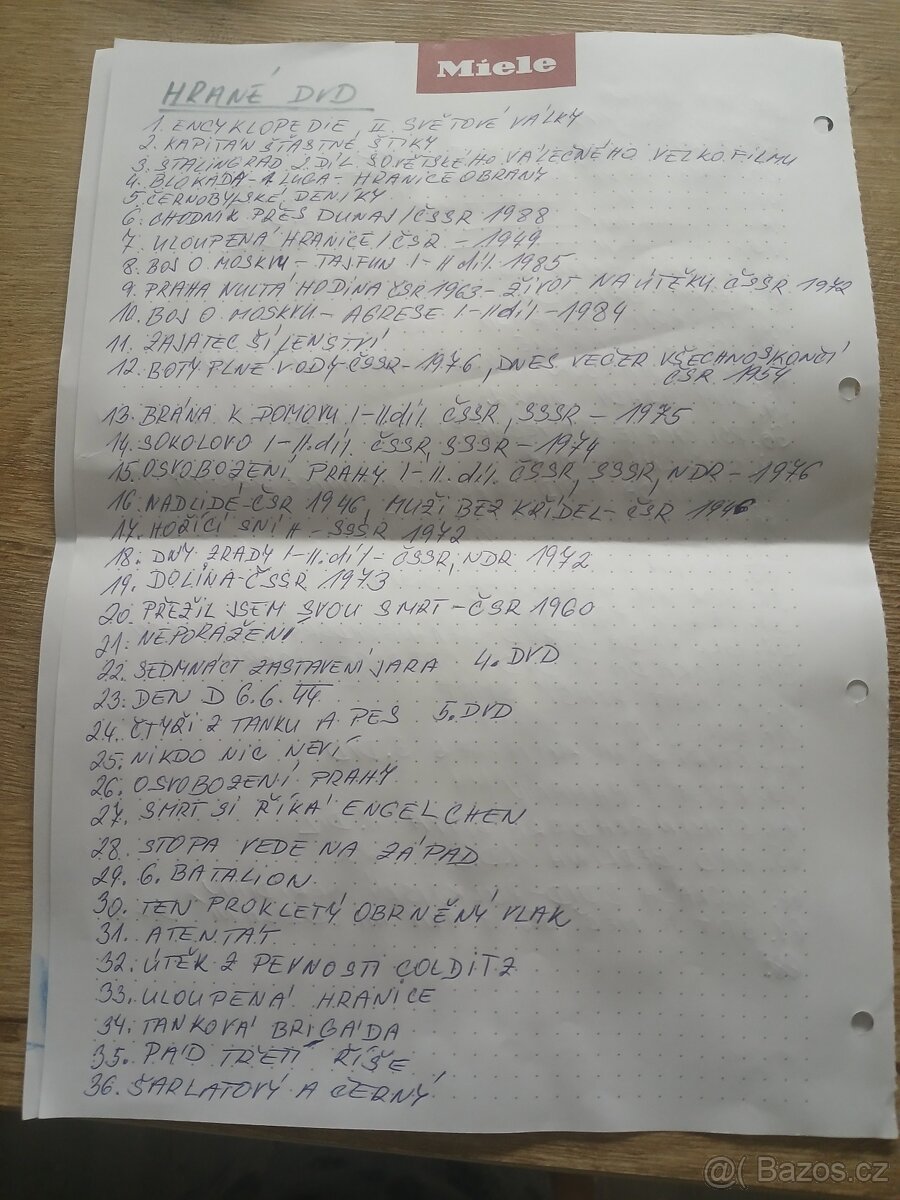 Miele
HRANÉ DVD
1. ENCYKLOPEDIE II. SVĚTOVÉ VÁLKY
2. KAPITÁN ŠŤASTNÉ ŠTIKY
3. STALINGRAD 2. DÍL SOVĚTSKÉHO VÁLEČNÉHO VELKOFILMU
4. BLOKÁDA - LUGA - HRANICE OBRANY
5. ČERNOBYLSKÉ DENÍKY
6. CHODNÍK PŘES DUNAJ / ČSSR 1988
7. ULOUPENÁ HRANICE / ČSR - 1949
8. BOJ O MOSKVU - TAJFUN I-II díl. 1985
9. PRAHA NULTÁ HODINA ČSR 1963 - ŽIVOT NA ÚTĚKU ČSSR 1972
10. BOJ O MOSKVU - AGRESE I-II díl - 1984
11. ZAJATEC ŠÍLENSTVÍ
12. BOTY PLNÉ VODY - ČSSR - 1976, DNES VEČER VŠECHNO SKONČÍ
ČSR 1954
13. BRÁNA K DOMOVU I-II. díl. ČSSR, SSSR - 1975
14. SOKOLOVO I-II. díl. ČSSR, SSSR - 1974
15. OSVOBOZENÍ PRAHY I-II. díl. ČSSR, SSSR, NDR - 1976
16. NADLIDÉ - ČSR 1946, MUŽI BEZ KŘÍDEL - ČSR 1946
17. HOŘÍCÍ SNÍH - SSSR 1972
18. DNY ZRADY I-II. díl - ČSSR, NDR 1972
19. DOLINA - ČSSR 1973
20. PŘEŽIL JSEM SVOU SMRT - ČSR 1960
21. NEPORAŽENÍ
22. SEDMNÁCT ZASTAVENÍ JARA 4. DVD
23. DEN D 6.6.44
24. ČTYŘI Z TANKU A PES 5. DVD
25. NIKDO NIC NEVÍ
26. OSVOBOZENÍ PRAHY
27. SMRT SI ŘÍKÁ ENGELCHEN
28. STOPA VEDE NA ZÁPAD
29. 6. BATALION
30. TEN PROKLETÝ OBRNĚNÝ VLAK
31. ATENTÁT
32. ÚTĚK Z PEVNOSTI COLDITZ
33. ULOUPENÁ HRANICE
34. TANKOVÁ BRIGÁDA
35. PÁD TŘETÍ ŘÍŠE
36. ŠARLATOVÝ A ČERNÝ
@( Bazos.cz